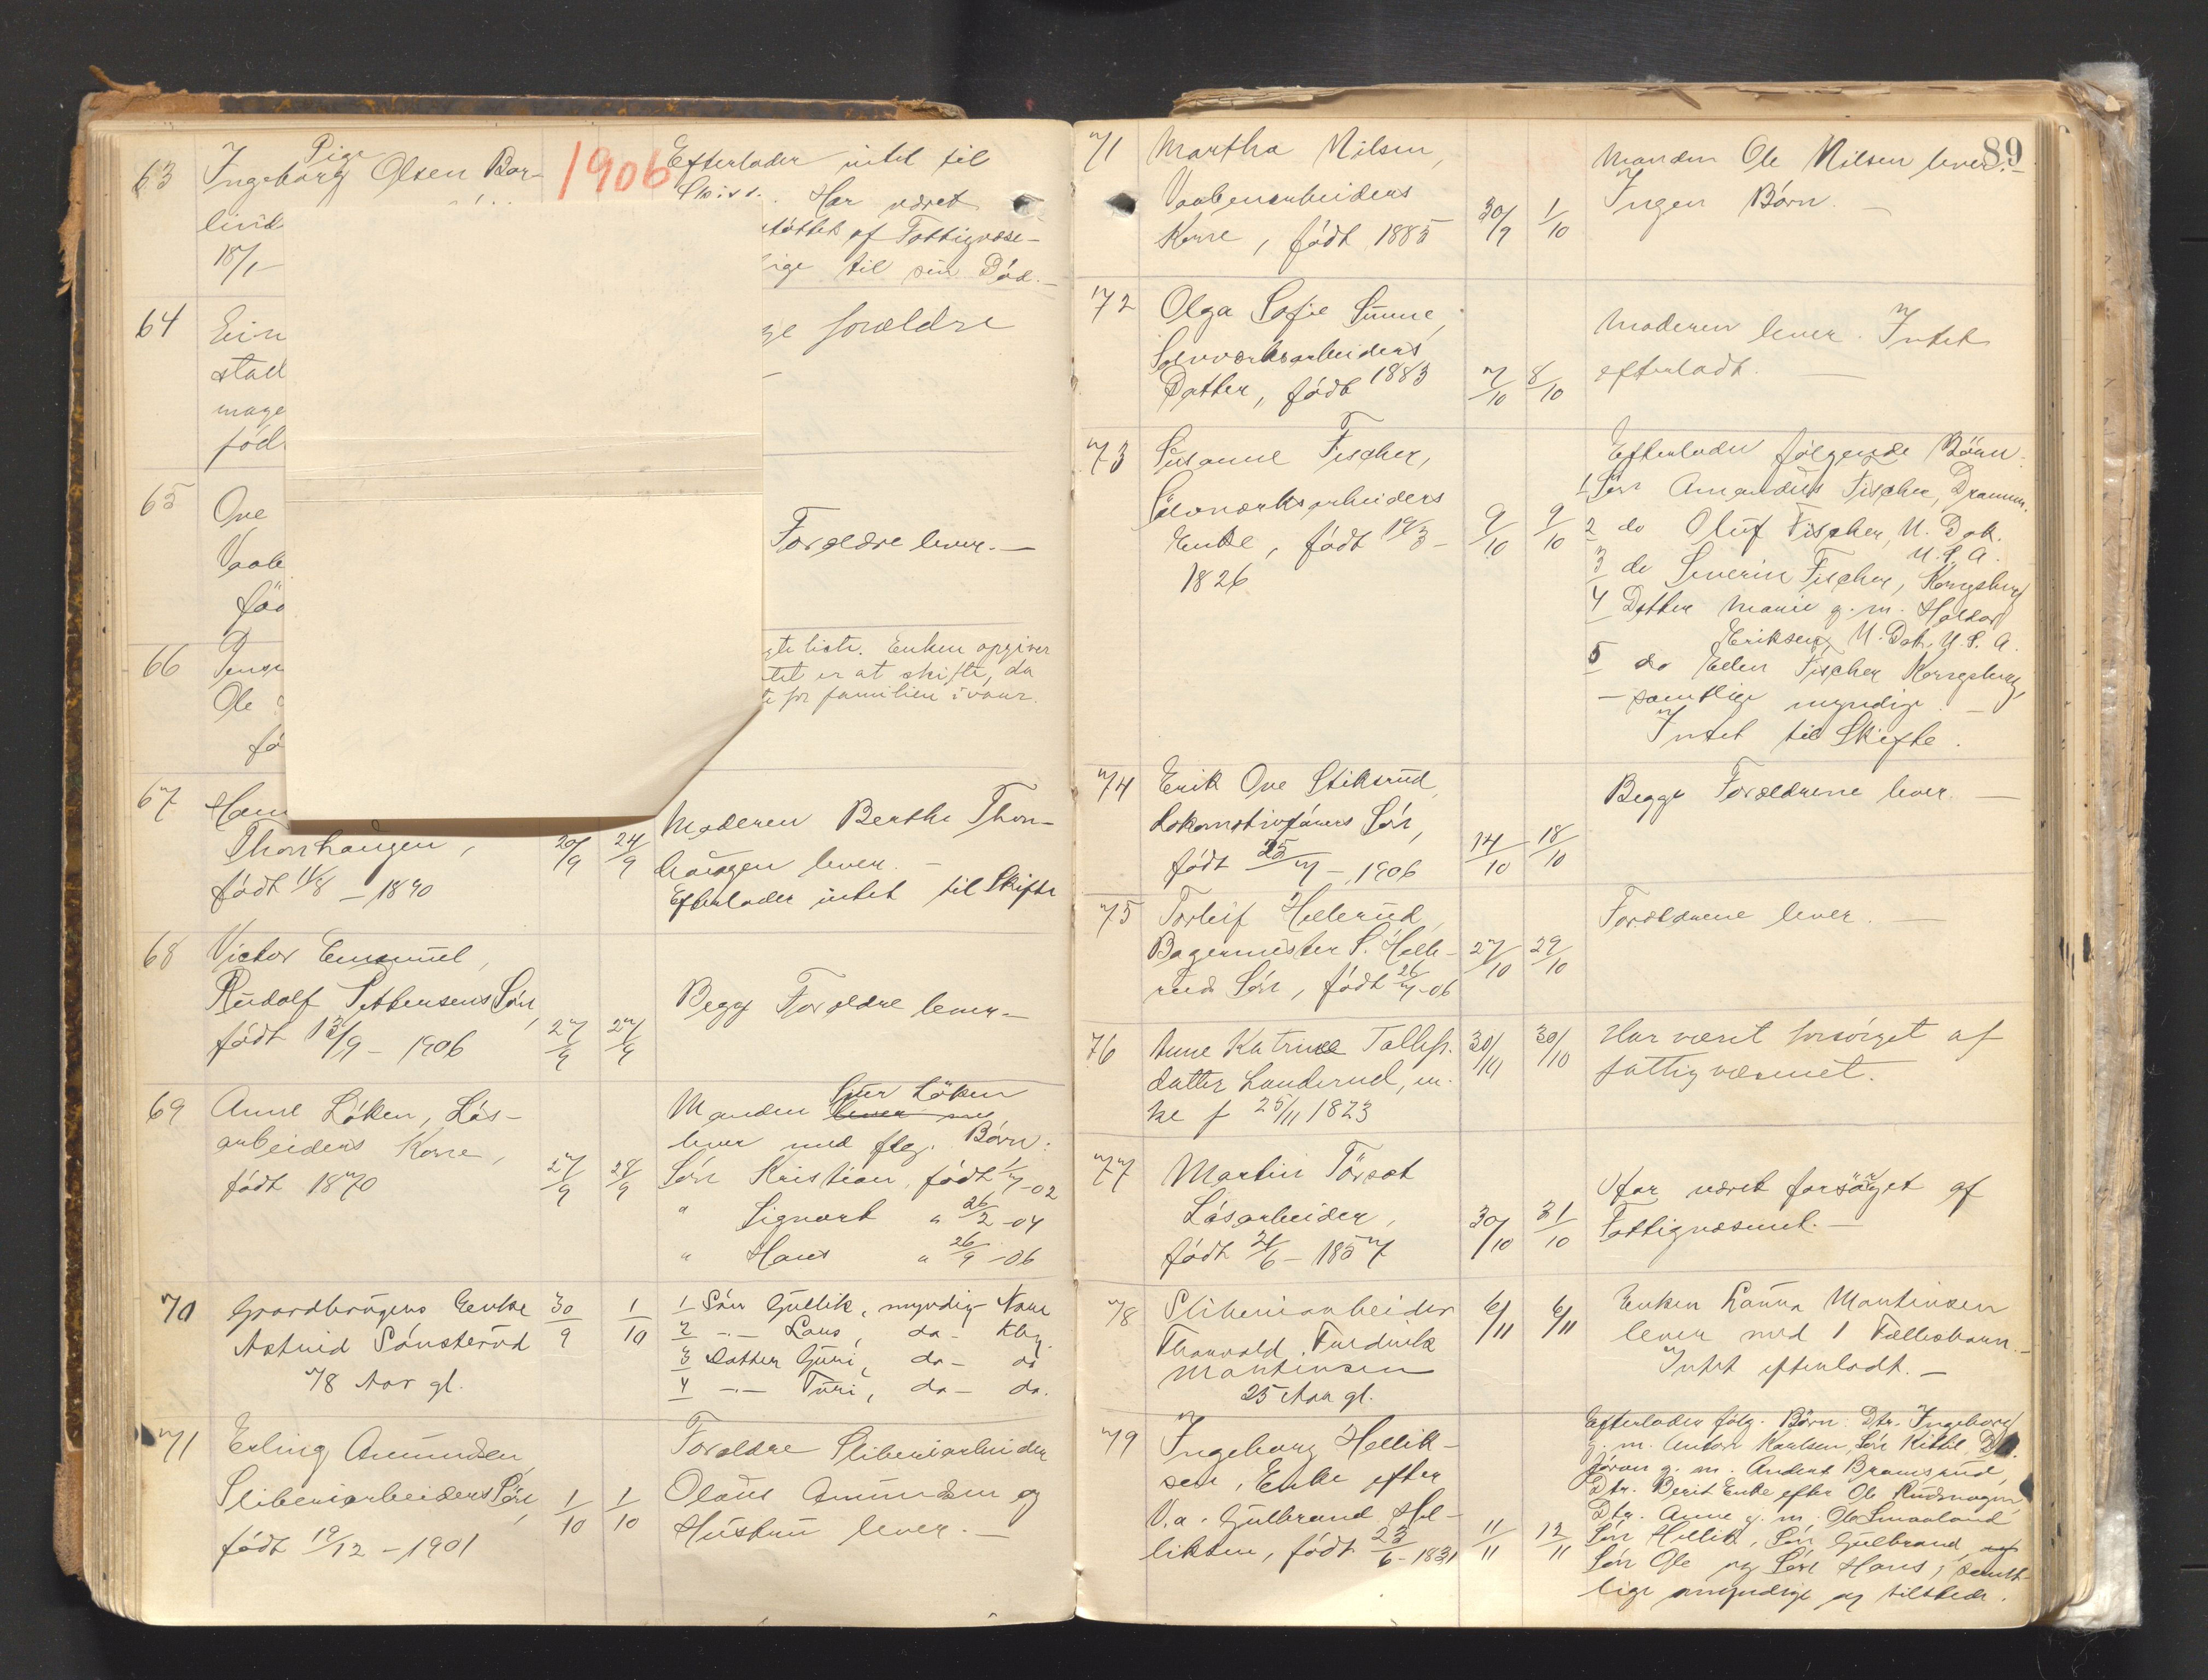 63
Pige
Ingeborg Olsen Bor-
lind
18/1-
1906
Efterlader intet til
Har været
støttet af Fattigvæse-
lige til sin Död.-
64
Ein
stad
mage
föd
ge forældre
65
Ove
Vaab
föd
Forældre lever.-
66
Ole
fö
gte liste. Enken opgiver
tet er at skifte, da
for familien
67
Thorshaugen,
født 11/8 - 1890
20/9 24/9
Moderen Berthe Thors-
haugen lever. -
Efterlader intet til Skifte
68
Victor Emanuel,
Rudolf Pettersens Sön,
født 13/9 - 1906
27/9 27/9
Begge Forældre lever -
69
Anne Löken, Lös-
arbeiders Kone,
født 1870
27/9 28/9
Manden Iver Löken
lever med flg. Börn:
Sön Kristian, født 1/7-02
" Sigvart " 26/2-04
" Hans " 26/9-06
70
Gaardbrugers Enke
Astrid Sønsteröd
78 Aar gl.
30/9 1/10
1 Sön Gullik, myndig
2 -.- Lars, do-
3 Datter Guri, do- do
4 -.- Turi, do- do.
71
Erling Amundsen,
Sliberiarbeiders Sön,
født 19/12 - 1901
1/10 1/10
Forældre Sliberiarbeider
Olaus Amundsen og
Hustru lever. -
89
71
Martha Nilsen,
Vaabenarbeiders
Kone, født 1885
30/9 1/10
Manden Ole Nilsen lever.-
Ingen Börn. -
72
Olga Sofie Sunne,
Sølvværksarbeiders
Datter, født 1883
7/10 8/10
Moderen lever. Intet
efterladt. -
73
Susanne Fischer,
Sølvværksarbeiders
Enke, født 19/3 -
1826
9/10 9/10
Efterlader følgende Börn:
1 Sön Amandus Fischer, Drammen.
2 do Oluf Fischer, N. Dak.
U.S.A.
3 do Severin Fischer, Kongsberg
4 Datter Marie g.m. Haldor
Eriksen, N. Dak. U.S.A.
5 do Ellen Fischer Kongsberg,
- samtlige myndige. -
Intet til Skifte.
74
Erik Ove Stiksrud,
Lokomotivførers Sön,
født 25/7 - 1906
14/10 18/10
Begge Forældrene lever. -
75
Torleif Hellerud,
Bagermester S. Helle-
ruds Sön, født 26/7-06
27/10 29/10
Forældrene lever. -
76
Anne Katrine Tollefs-
datter Landerud, en-
ke f 25/11 1823
30/10 30/10
Har været forsörget af
fattigvæsenet.
77
Martin Törset
Lösarbeider,
født 21/6 - 1857
30/10 31/10
Har været forsörget af
Fattigvæsenet. -
78
Sliberiarbeider
Thorvald Fredrik
Martinsen
25 Aar gl.
6/11 6/11
Enken Laura Martinsen
lever med 1 Fællesbarn.-
Intet efterladt. -
79
Ingeborg Hellik-
sen, Enke efter
V.a. Gulbrand Hel-
liksen, født 23/6-1831
11/11 12/11
Efterlader følg. Börn: Dtr. Ingeborg
g.m. Anton Karlsen, Sön Kittil, Dtr.
Jöran g.m. Anders Bramsrud,
Dtr. Berit Enke efter Ole
Dtr. Anne g.m. Ole Smaaland
Sön Hellik, Sön Gulbrand, og
Sön Ole og Sön Hans, samt-
lige myndige og tilstede.